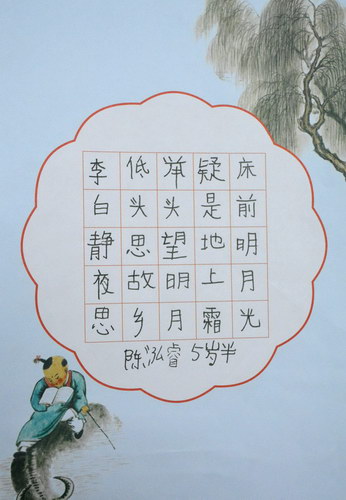 床前明月光
疑是地上霜
举头望明月
低头思故乡
李白静夜思
陈泓睿 5岁半